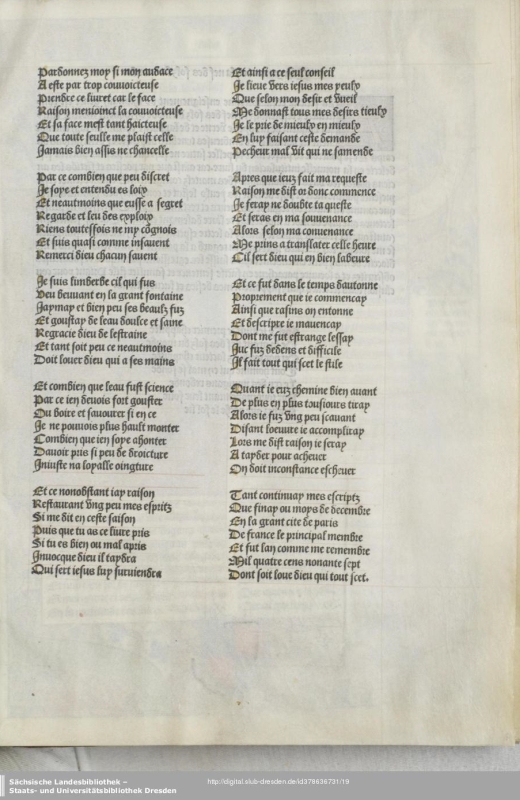 Pardonnez moy si mon audace
A este par trop couvoicteuse
Prendre ce livret car le face
Raison menioinct la couvoicteuse
Et sa face mest tant haicteuse
Que toute seulle me plaist celle
Jamais bien assis ne chancelle
Par ce combien que peu discret
Je soye et entendu es loix
Et neautmoins que eusse a segret
Regarde et leu des exploix
Riens toutessois ne my cõgnois
Et suis quasi comme insavent
Remerci dieu chacun savent
Je suis limberbe cil qui fus
Veu beuvant en la grant fontaine
Jaymay et bien peu ses beaulx fuz
Et goustay de leau doulce et saine
Regracie dieu de lestraine
Et tant soit peu ce neautmoins
Doit louer dieu qui a ses mains
Et combien que leau fust science
Par ce ien devois fort gouster
Ou boire et savourer si en ce
Je ne povoiois plus hault monter
Combien que ien soye ahonter
Davoir pris si peu de droicture
Iniuste na loyalle oingture
Et ce nonobstant iay raison
Restaurant vng peu mes espritz
Si me dit en ceste saison
Puis que tu as ce livre pris
Si tu es bien ou mal apris
Invocque dieu il taydra
Qui sert iesus luy surviendra
Et ainsi a ce seul conseil
Je lieve vers iesus mes yeulx
Que selon mon desir et vueil
Me donnast tous mes desirs tieulx
Je le prie de mieulx en mieulx
En luy faisant ceste demande
Pecheur mal vit qui ne samende
Apres que ieuz fait ma requeste
Raison me dist or donc commence
Je feray ne doubte ta queste
Et seras en ma souvenance
Alors selon ma convenance
Me prins a translater celle heure
Cil sert dieu qui en bien labeure
Et ce fut dans le temps dautonne
Proprement que ie commencay
Ainsi que rasins on entonne
Et descripre ie mavencay
Dont me fut estrange lessay
Juc fuz dedens et difficile
Il fait tout qui scet le stile
Quant ie euz chemine bien avant
De plus en plus tousiours tiray
Alors ie fuz vng peu scavant
Disant loeuvre ie accompliray
Lors me dist raison ie seray
A tayder pour achever
On doit inconstance eschever
Tant continuay mes escriptz
Que finay ou moys de decembre
En la grant cite de paris
De france le principal membre
Et fut lan comme me remembre
Mil quatre cens nonante sept
Dont soit loue dieu qui tout scet.
Sächsische Landesbibliothek –
Staats- und Universitätsbibliothek Dresden
http://digital.slub-dresden.de/id378636731/19